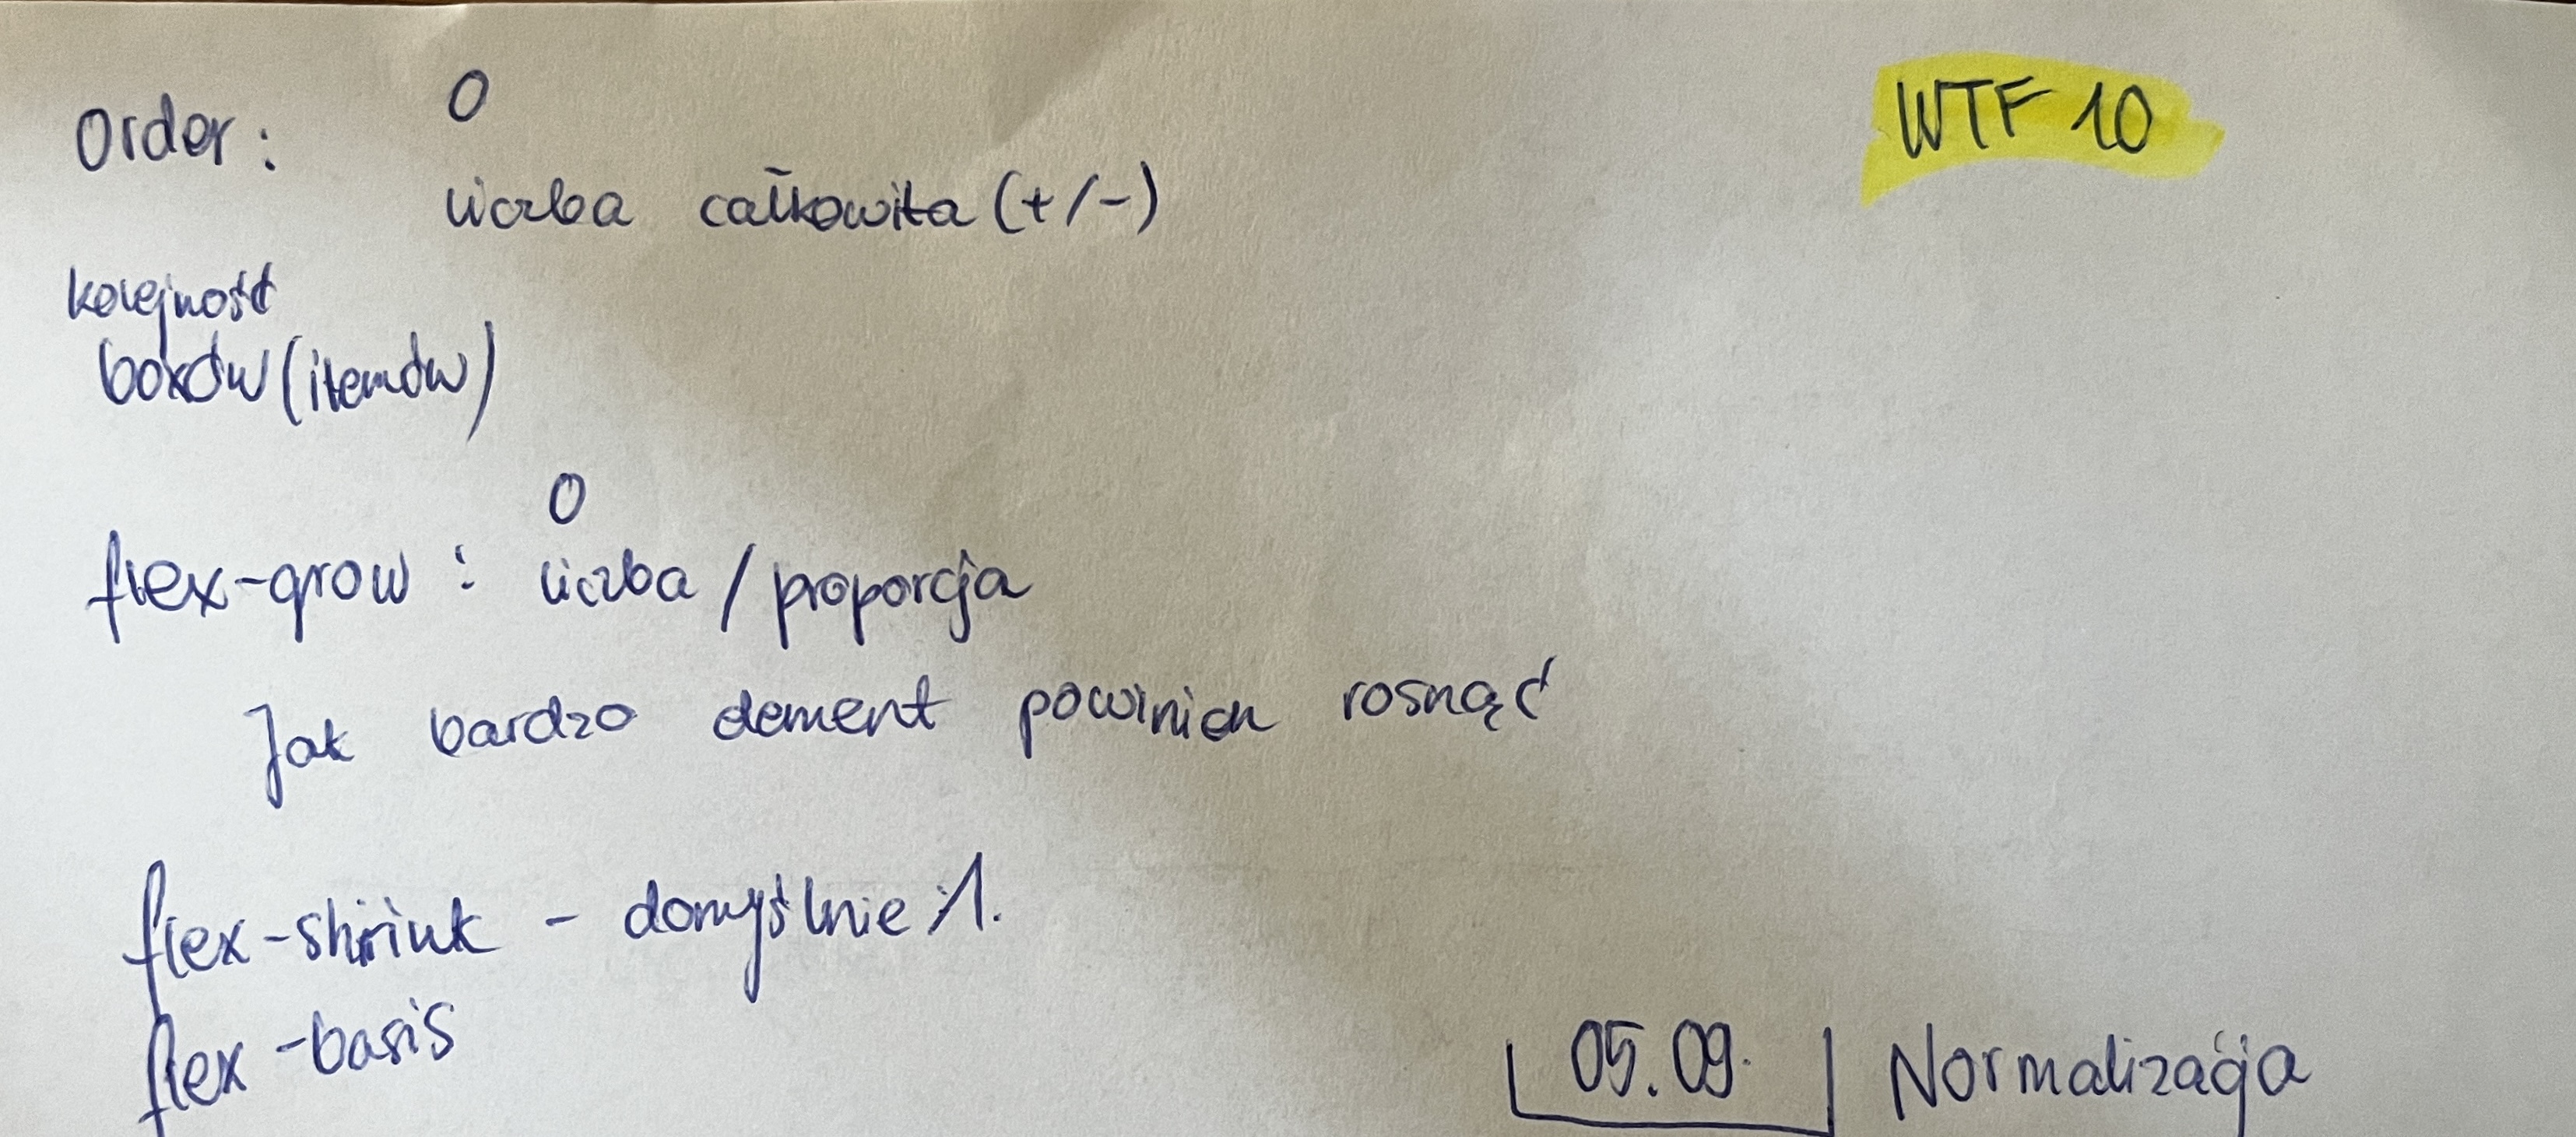 0
Order:
WTF 10
liczba całkowita (+/-)
kolejność
boxów (itemów)
0
flex-grow : liczba / proporcja
Jak bardzo element powinien rosnąć
flex-shrink - domyślnie 1.
flex-basis
05.09.
Normalizacja